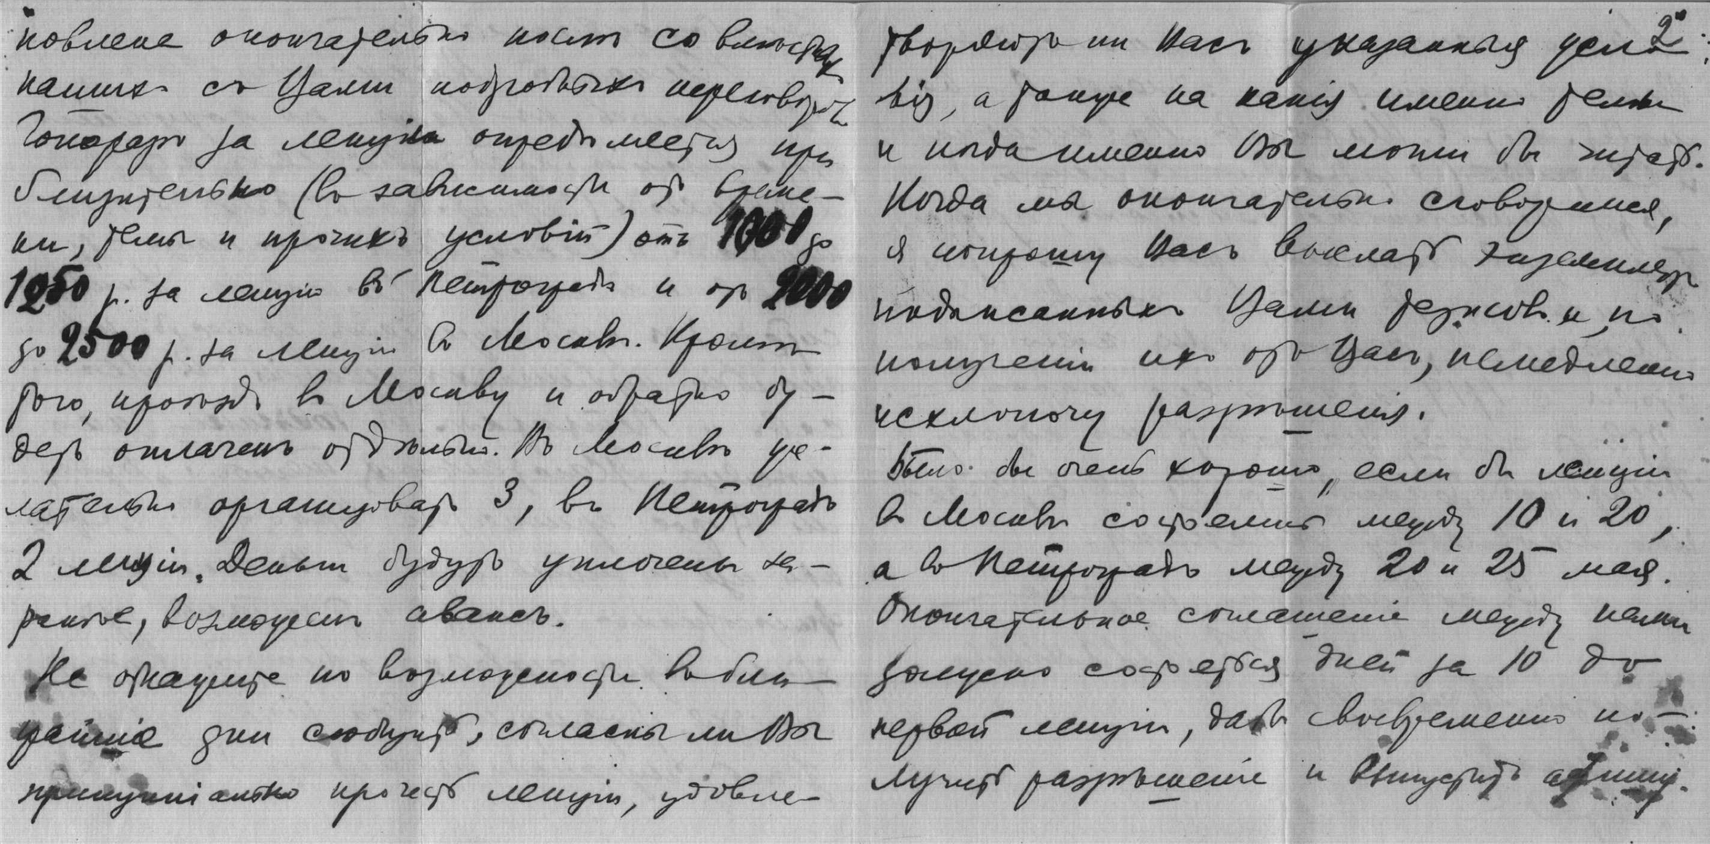 новлена окончательно послѣ совмѣстныхъ
нашихъ съ Вами подробныхъ переговоровъ.
Гонораръ за лекціи опредѣляется при
близительно (въ зависимости отъ време-
ни, темы и прочихъ условій) отъ 1000 до
1250 р. за лекцію въ Петроградѣ и отъ 2000
до 2500 р. за лекцію въ Москвѣ. Кромѣ
того, проѣздъ въ Москву и обратно бу-
детъ оплаченъ отдѣльно. Въ Москвѣ же-
лательно организовать 3, въ Петроградѣ
2 лекціи. Деньги будутъ уплочены за-
ранѣе, возможенъ авансъ.
Не откажите по возможности въ бли-
жайшіе дни сообщить, согласны ли Вы
принципіально прочесть лекціи, удовле-
2
творяютъ ли Васъ указанныя усло-
вія, а также на какія именно темы
и когда именно Вы могли бы читать.
Когда мы окончательно сговоримся,
я попрошу Васъ выслать экземпляръ
подписанныхъ Вами тезисовъ и, по
полученіи ихъ отъ Васъ, немедленно
исхлопочу разрѣшенія.
Было бы очень хорошо, если бы лекціи
въ Москвѣ состоялись между 10 и 20,
а въ Петроградѣ между 20 и 25 мая.
Окончательное соглашеніе между нами
должно состояться дней за 10 до
первой лекціи, дабы своевременно по-
лучить разрѣшеніе и выпустить афишу.